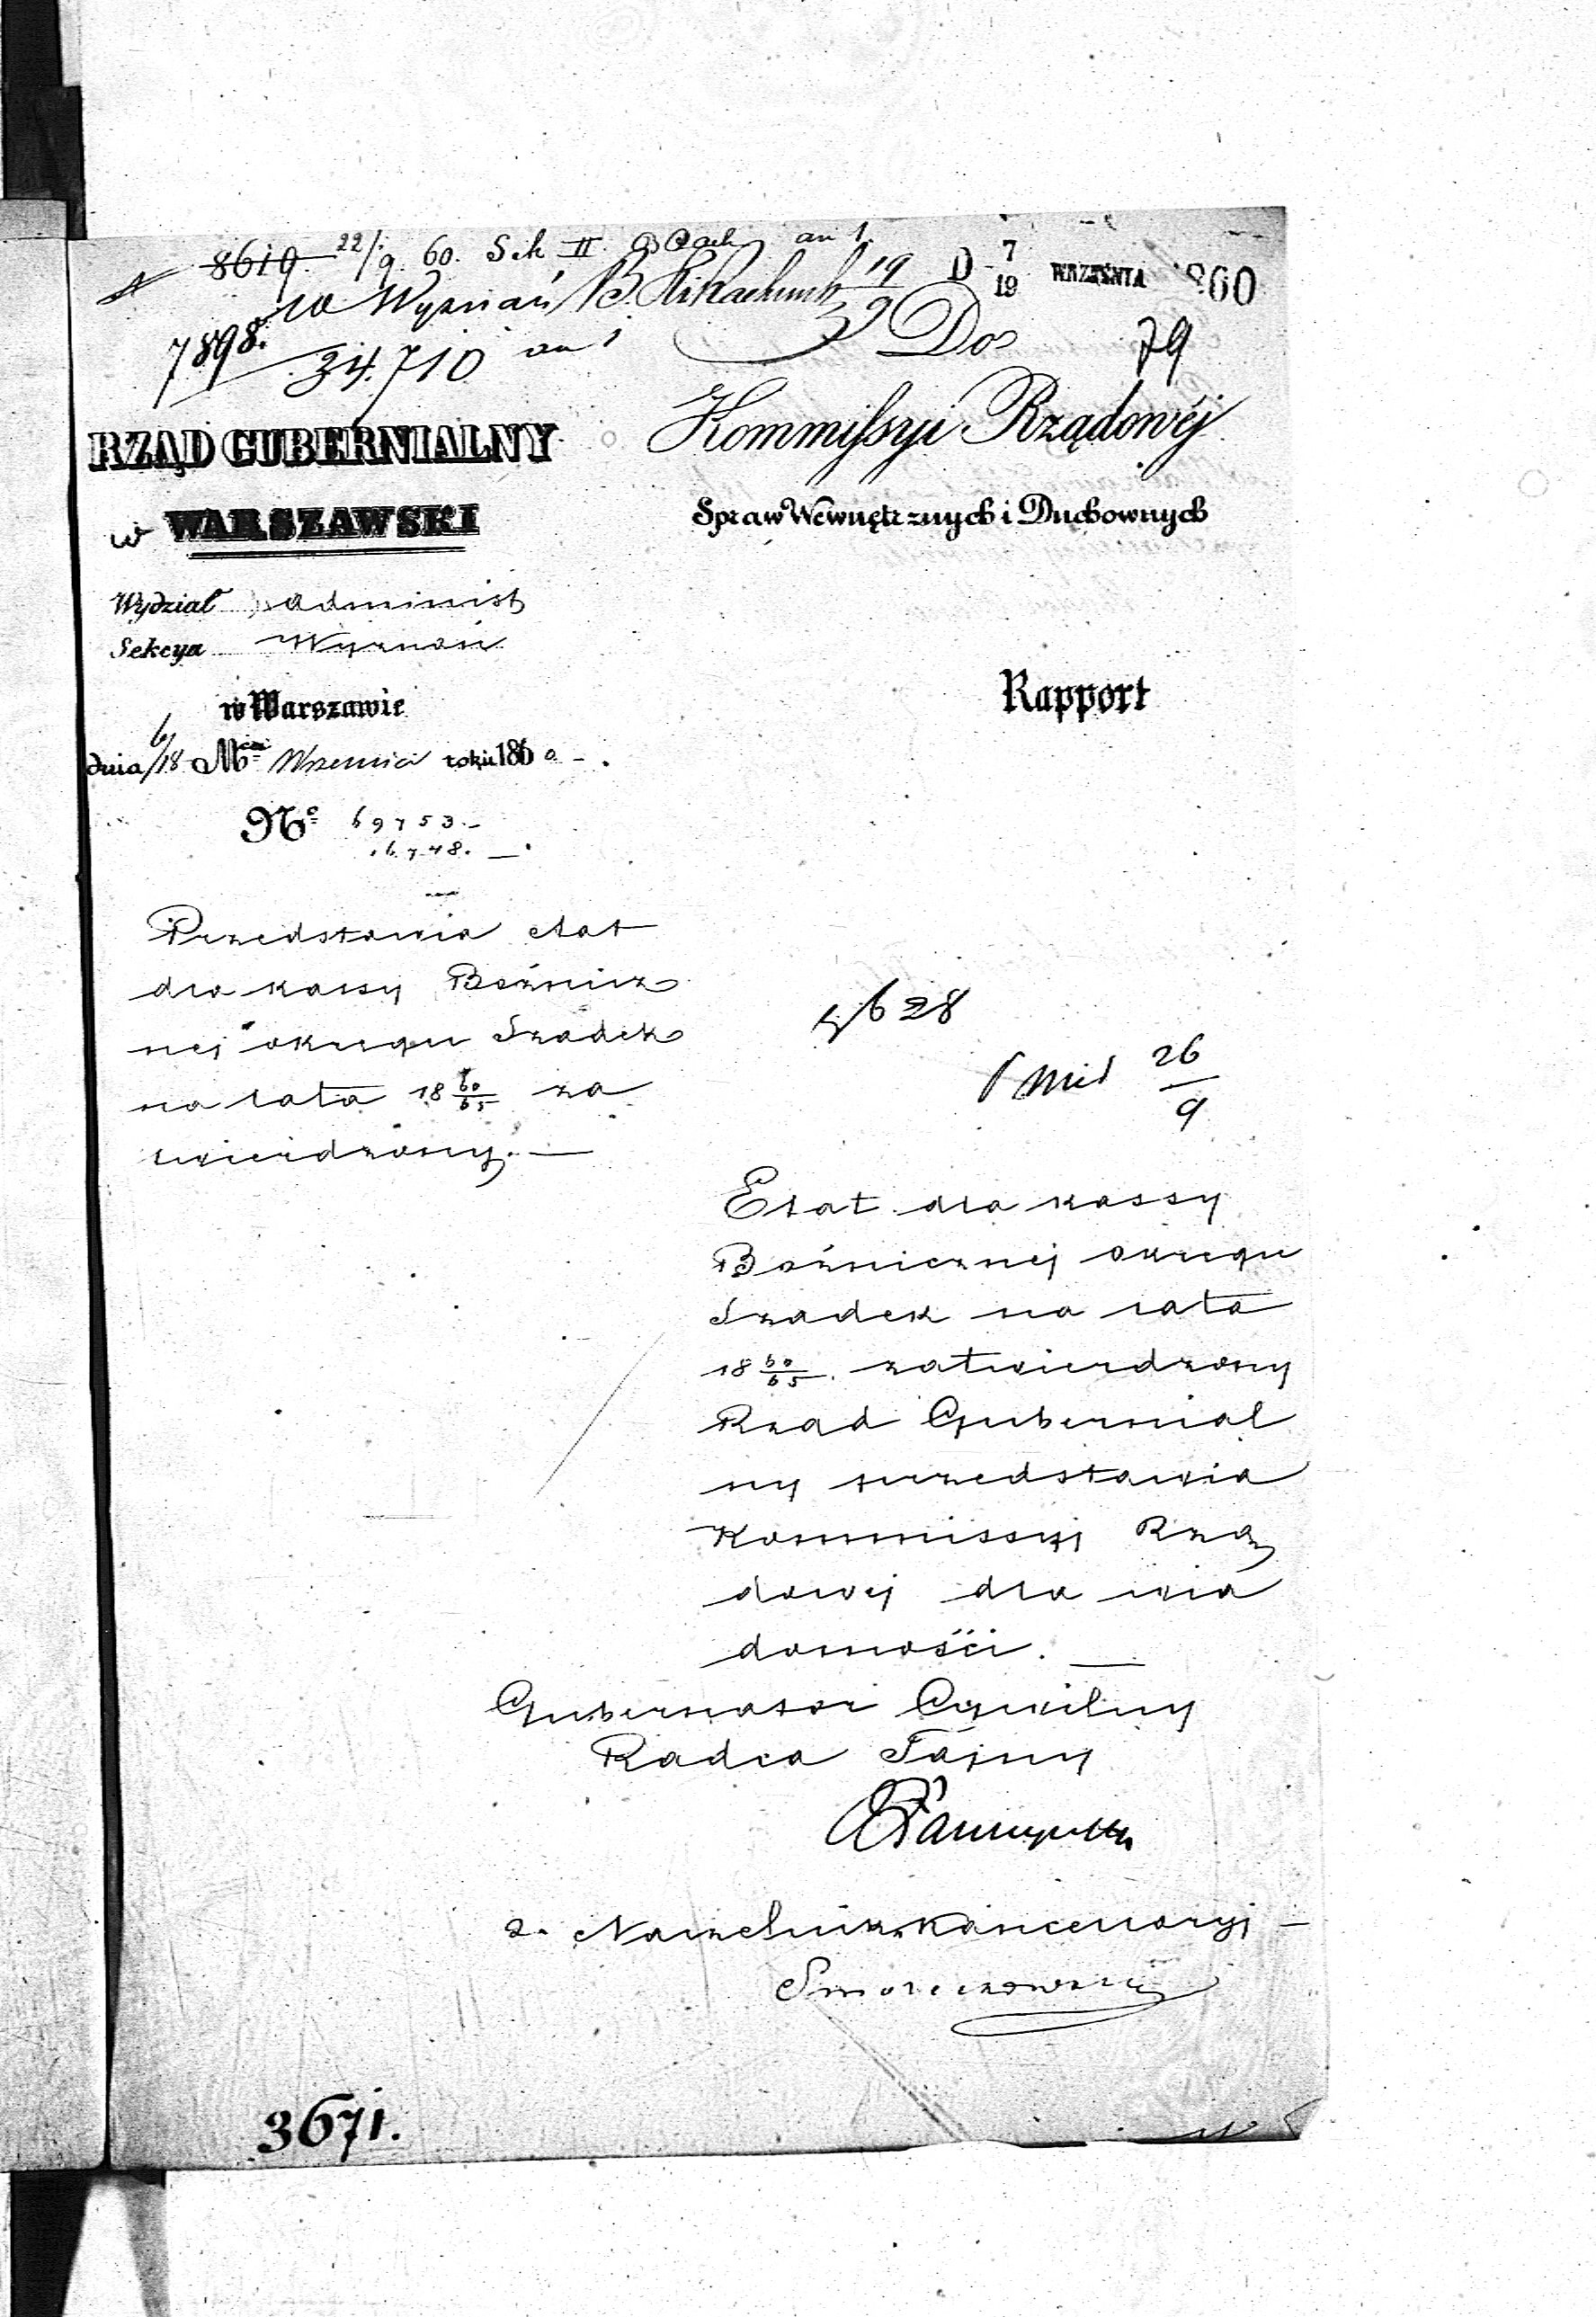 8619 22/9 60. Sek II an 1.
D 7/19 WRZEŚNIA 1860
w Wyznań 19/9
7898. 34.710 an 1
Do 79
RZĄD GUBERNIALNY
w WARSZAWSKI
Wydział Administ
Sekcya Wyznań
w Warszawie
dnia 6/18 Mca Wrzesnia roku 1860 -.
No 69753.-
16748. —
Kommissyi Rządowéj
Spraw Wewnętrznych i Duchownych
Rapport
Przedstawia etat
dla kassy Bóżnicz
nej okręgu Szadek
na lata 18 60/65 za
twierdzony. —
5628
26/9
Etat dla kassy
Bóżnicznej okręgu
Szadek na lata
18 60/65 zatwierdzony
Rząd Gubernial
ny przedstawia
Kommissyi Rzą
dowej dla wia
domości. —
Gubernator Cywilny
Radca Tajny
z. Naczelnik Kancellaryi -
3671.